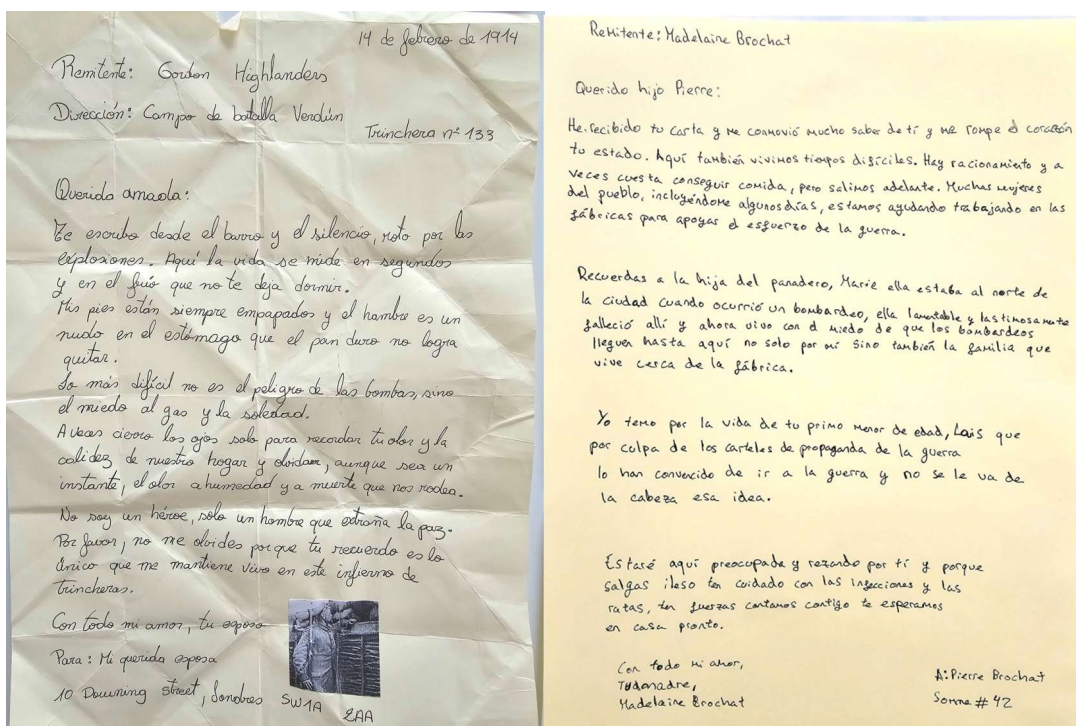 14 de febrero de 1914
Remitente: Gordon Highlanders
Dirección: Campo de batalla Verdún
Trinchera nº 133
Querida amada:
Te escribo desde el barro y el silencio, roto por las
explosiones. Aquí la vida se mide en segundos
y en el frío que no te deja dormir.
Mis pies están siempre empapados y el hambre es un
nudo en el estómago que el pan duro no logra
quitar.
Lo más difícil no es el peligro de las bombas, sino
el miedo al gas y la soledad.
A veces cierro los ojos solo para recordar tu olor y la
calidez de nuestro hogar y olvidar, aunque sea un
instante, el olor a humedad y a muerte que nos rodea.
No soy un héroe, solo un hombre que extraña la paz.
Por favor, no me olvides porque tu recuerdo es lo
único que me mantiene vivo en este infierno de
trincheras.
Con todo mi amor, tu esposo
Para: Mi querida esposa
10 Downing street, Londres SW1A
2AA
Remitente: Madelaine Brochat
Querido hijo Pierre:
He recibido tu carta y me conmovió mucho saber de tí y me rompe el corazón
tu estado. Aquí también vivimos tiempos difíciles. Hay racionamiento y a
veces cuesta conseguir comida, pero salimos adelante. Muchas mujeres
del pueblo, incluyéndome algunos días, estamos ayudando trabajando en las
fábricas para apoyar el esfuerzo de la guerra.
Recuerdas a la hija del panadero, Marie ella estaba al norte de
la ciudad cuando ocurrió un bombardeo, ella lamentable y lastimosamente
falleció allí y ahora vivo con el miedo de que los bombardeos
lleguen hasta aquí no solo por mí sino también la familia que
vive cerca de la fábrica.
Yo temo por la vida de tu primo menor de edad, Lois que
por culpa de los carteles de propaganda de la guerra
lo han convencido de ir a la guerra y no se le va de
la cabeza esa idea.
Estaré aquí preocupada y rezando por tí y porque
salgas ileso ten cuidado con las infecciones y las
ratas, ten fuerzas contamos contigo te esperamos
en casa pronto.
Con todo mi amor,
Madelaine Brochat
A: Pierre Brochat
Somme # 42